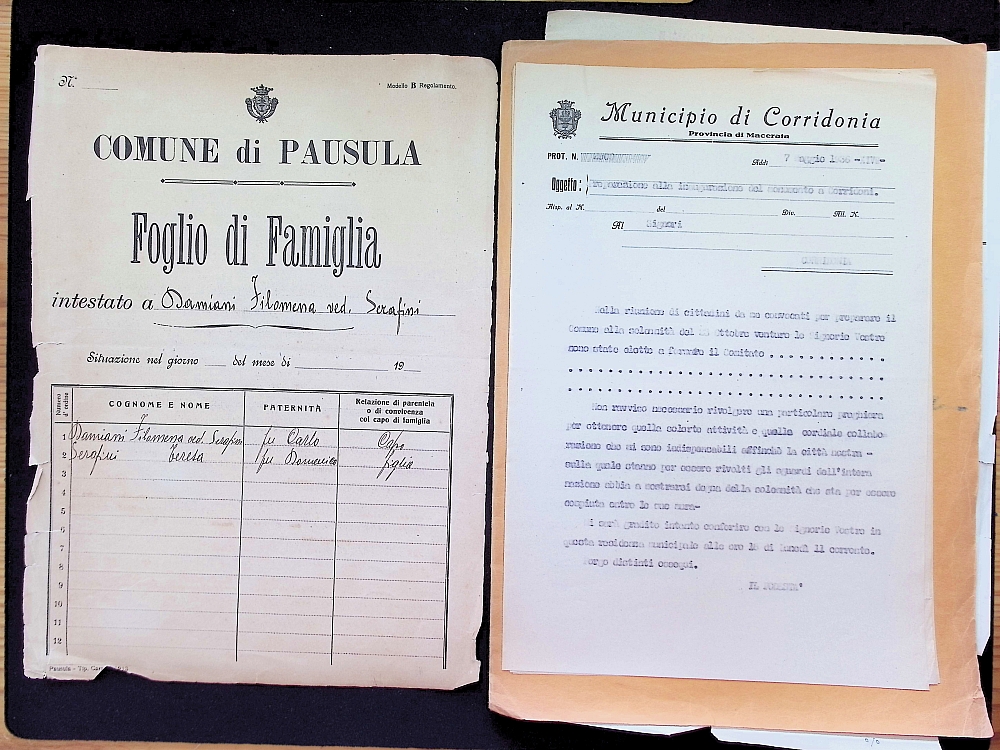 N.
Modello B Regolamento.
COMUNE di PAUSULA
Foglio di Famiglia
intestato a Damiani Filomena ved. Serafini
Situazione nel giorno ___ del mese di ___ 19__
Numero d'ordine
COGNOME E NOME
PATERNITÀ
Relazione di parentela
o di convivenza
col capo di famiglia
1 Damiani Filomena ved. Serafini fu Carlo Capo
2 Serafini Teresa fu Domenico figlia
3
4
5
6
7
8
9
10
11
12
Pausula - Tip.
Municipio di Corridonia
Provincia di Macerata
PROT. N.
Addì 7 maggio 1936 -XIV-
Oggetto: Preparazione alla inaugurazione del monumento a Corridoni.
Risp. al N. del Div. All. N.
Al Signori
CORRIDONIA
Dalla riunione di cittadini da me convocati per preparare il
Comune alla solennità del Ottobre venturo le Signorie Vostre
sono state elette a formare il Comitato . . . . . . . . . . . .
. . . . . . . . . . . . . . . . . . . . . . . . . . . . . . . .
. . . . . . . . . . . . . . . . . . . . . . . . . . . . . . . .
Non ravviso necessario rivolgere una particolare preghiera
per ottenere quella solerte attività e quella cordiale collabo-
razione che mi sono indispensabili affinchè la città nostra -
sulla quale stanno per essere rivolti gli sguardi dell'intera
nazione abbia a mostrarsi degna della solennità che sta per essere
compiuta entro le sue mura-
Mi sarà gradito intanto conferire con le Signorie Vostre in
questa residenza municipale alle ore 18 di lunedì 11 corrente.
Porgo distinti ossequi.
IL PODESTA'